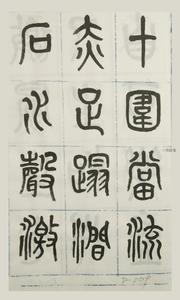 十圍當流
赤足蹋澗
石水聲激